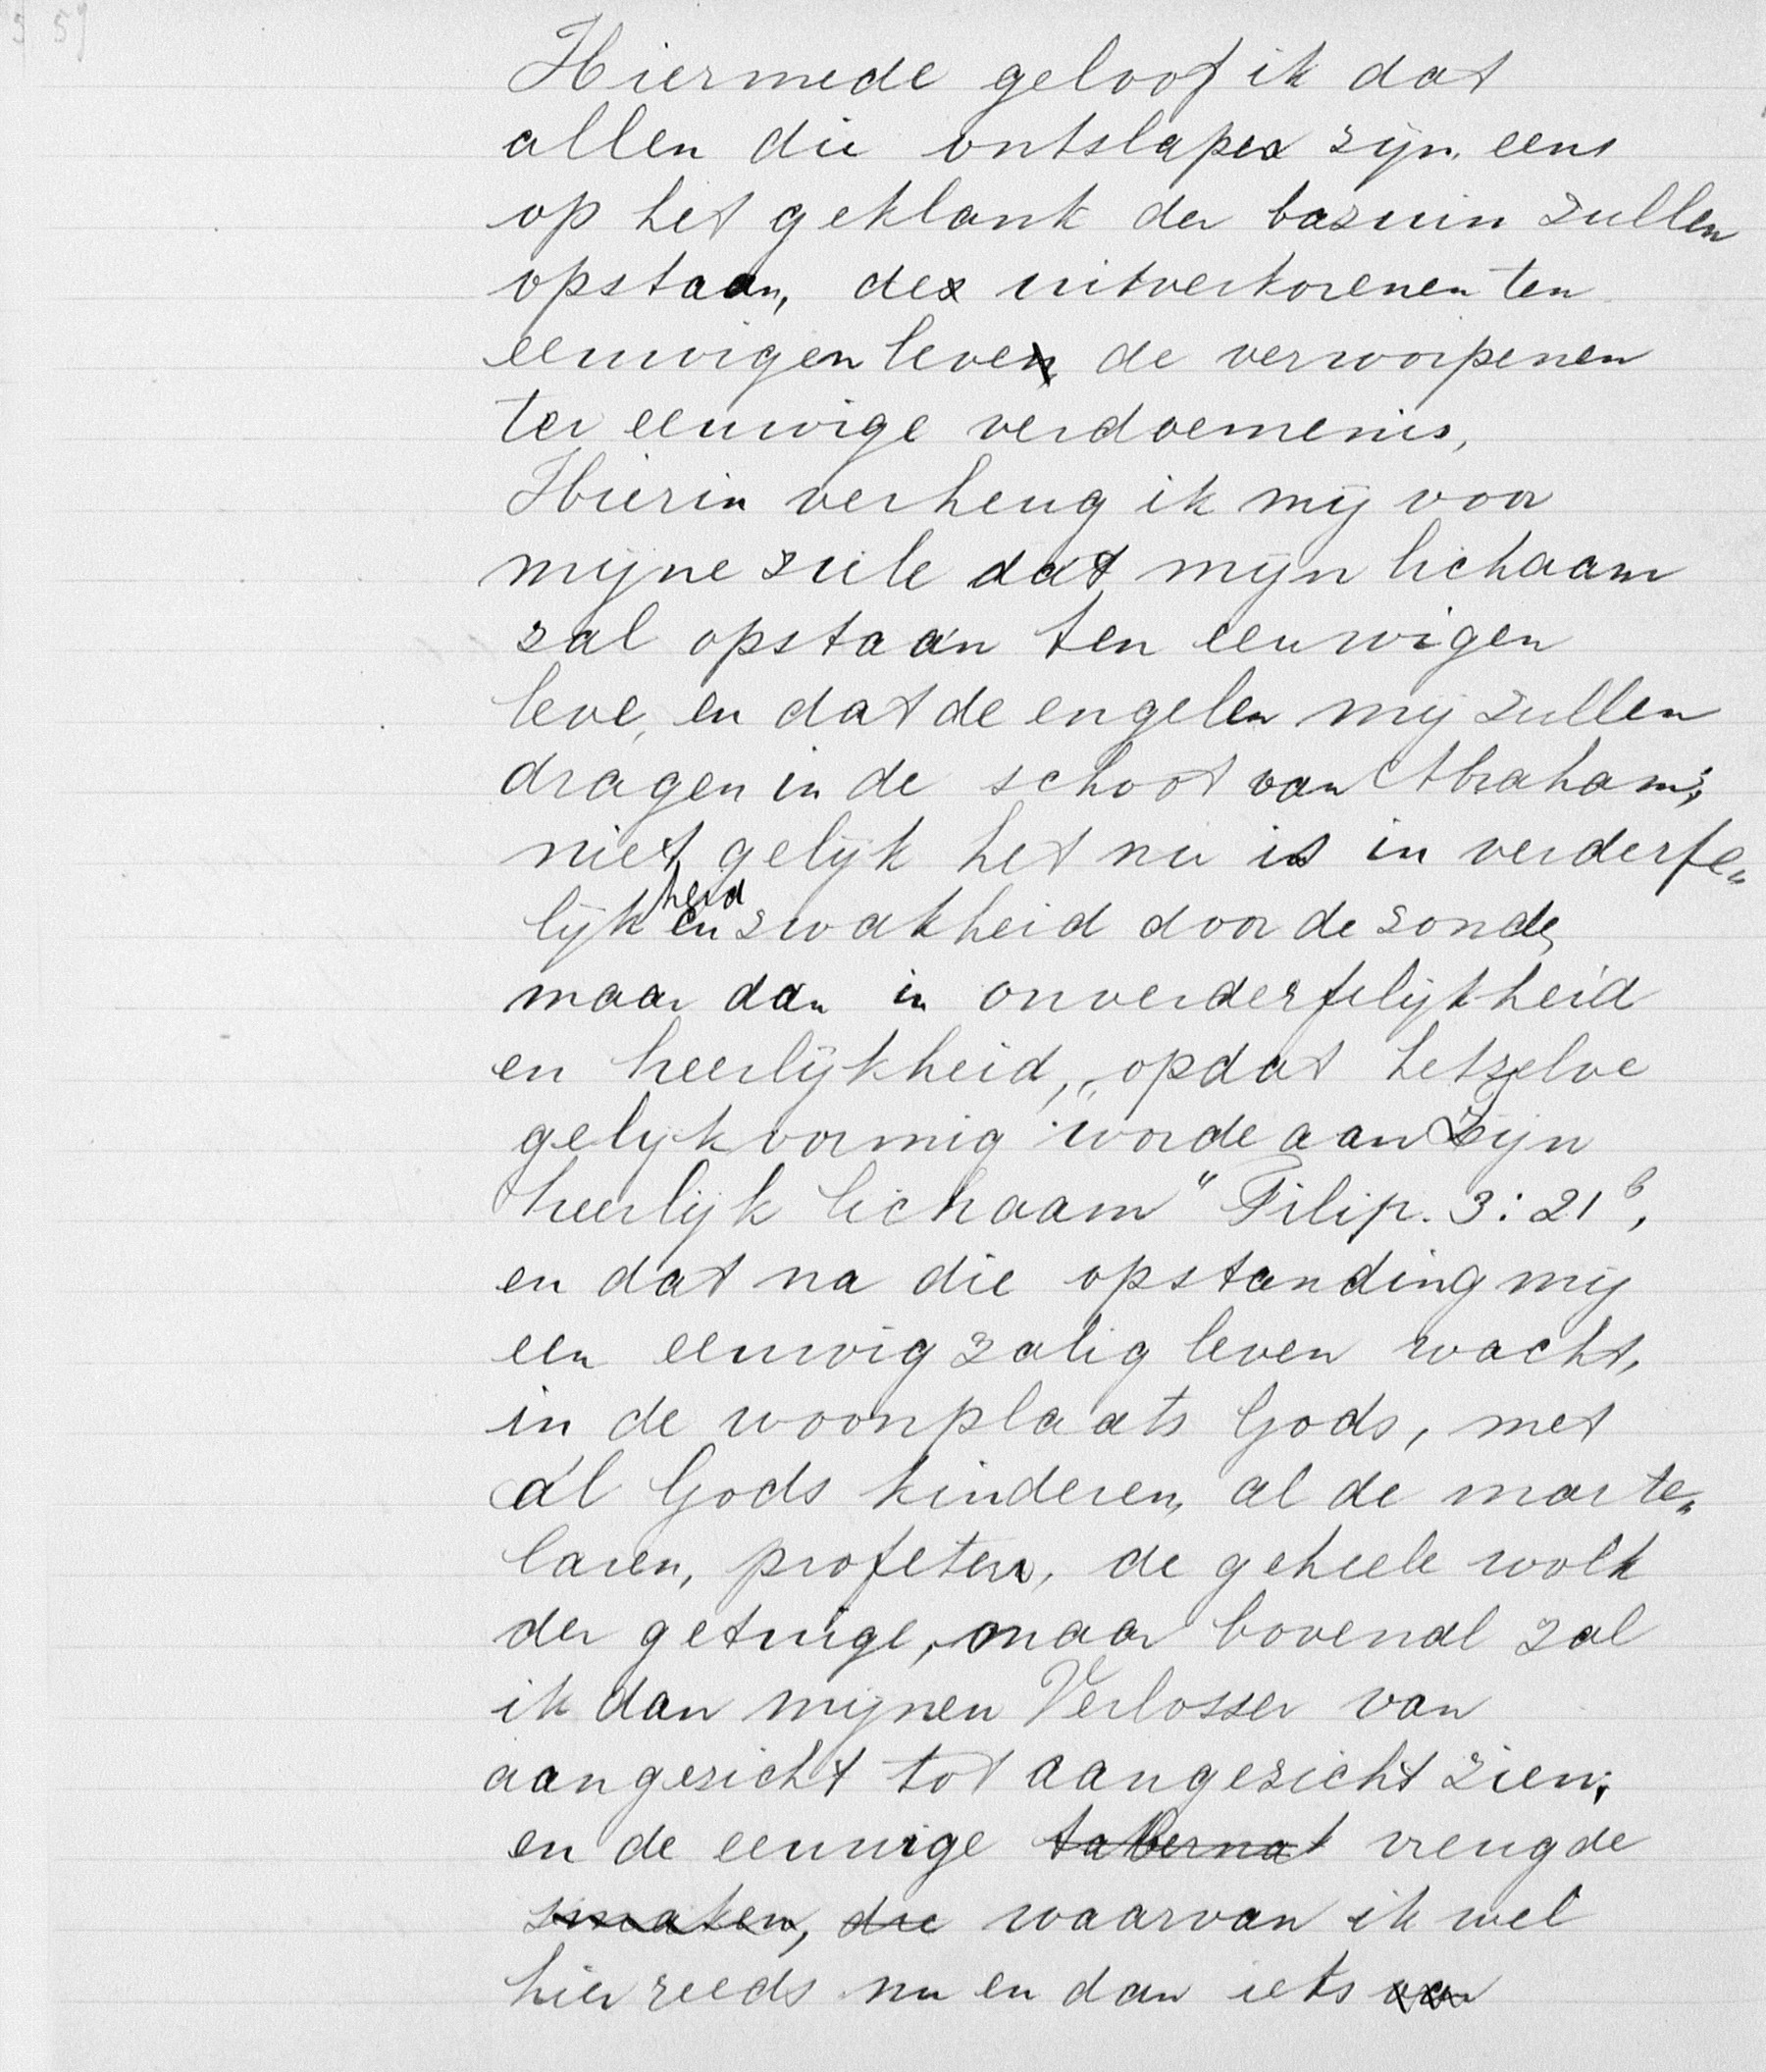 Hiermede geloof ik dat
allen die ontslapen zijn, eens
op het geklank der bazuin zullen
opstaan, de uitverkorenen ten
eeuwigen leve, de verworpenen
ter eeuwige verdoemenis,
Hierin verheug ik mij voor
mijne ziele dat mijn lichaam
zal opstaan ten eeuwigen
leve, en dat de engelen mij zullen
dragen in de schoot van Abraham;
niet gelijk het nu is in verderfe„
lijkheid en zwakheid door de zonde,
maar dan in onverderfelijkheid
en heerlijkheid, „opdat hetzelve
gelijkvormig worde aan Zijn
heerlijk lichaam" Filip. 3:21b,
en dat na die opstanding mij
een eeuwig zalig leven wacht,
in de woonplaats Gods, met
al Gods kinderen, al de marte„
laren, profeten, de geheele wolk
der getuige, maar bovenal zal
ik dan mijnen Verlosser van
aangezicht tot aangezicht zien;
en de eeuwige tabernak vreugde
smaken, die waarvan ik wel
hier reeds nu en dan iets van